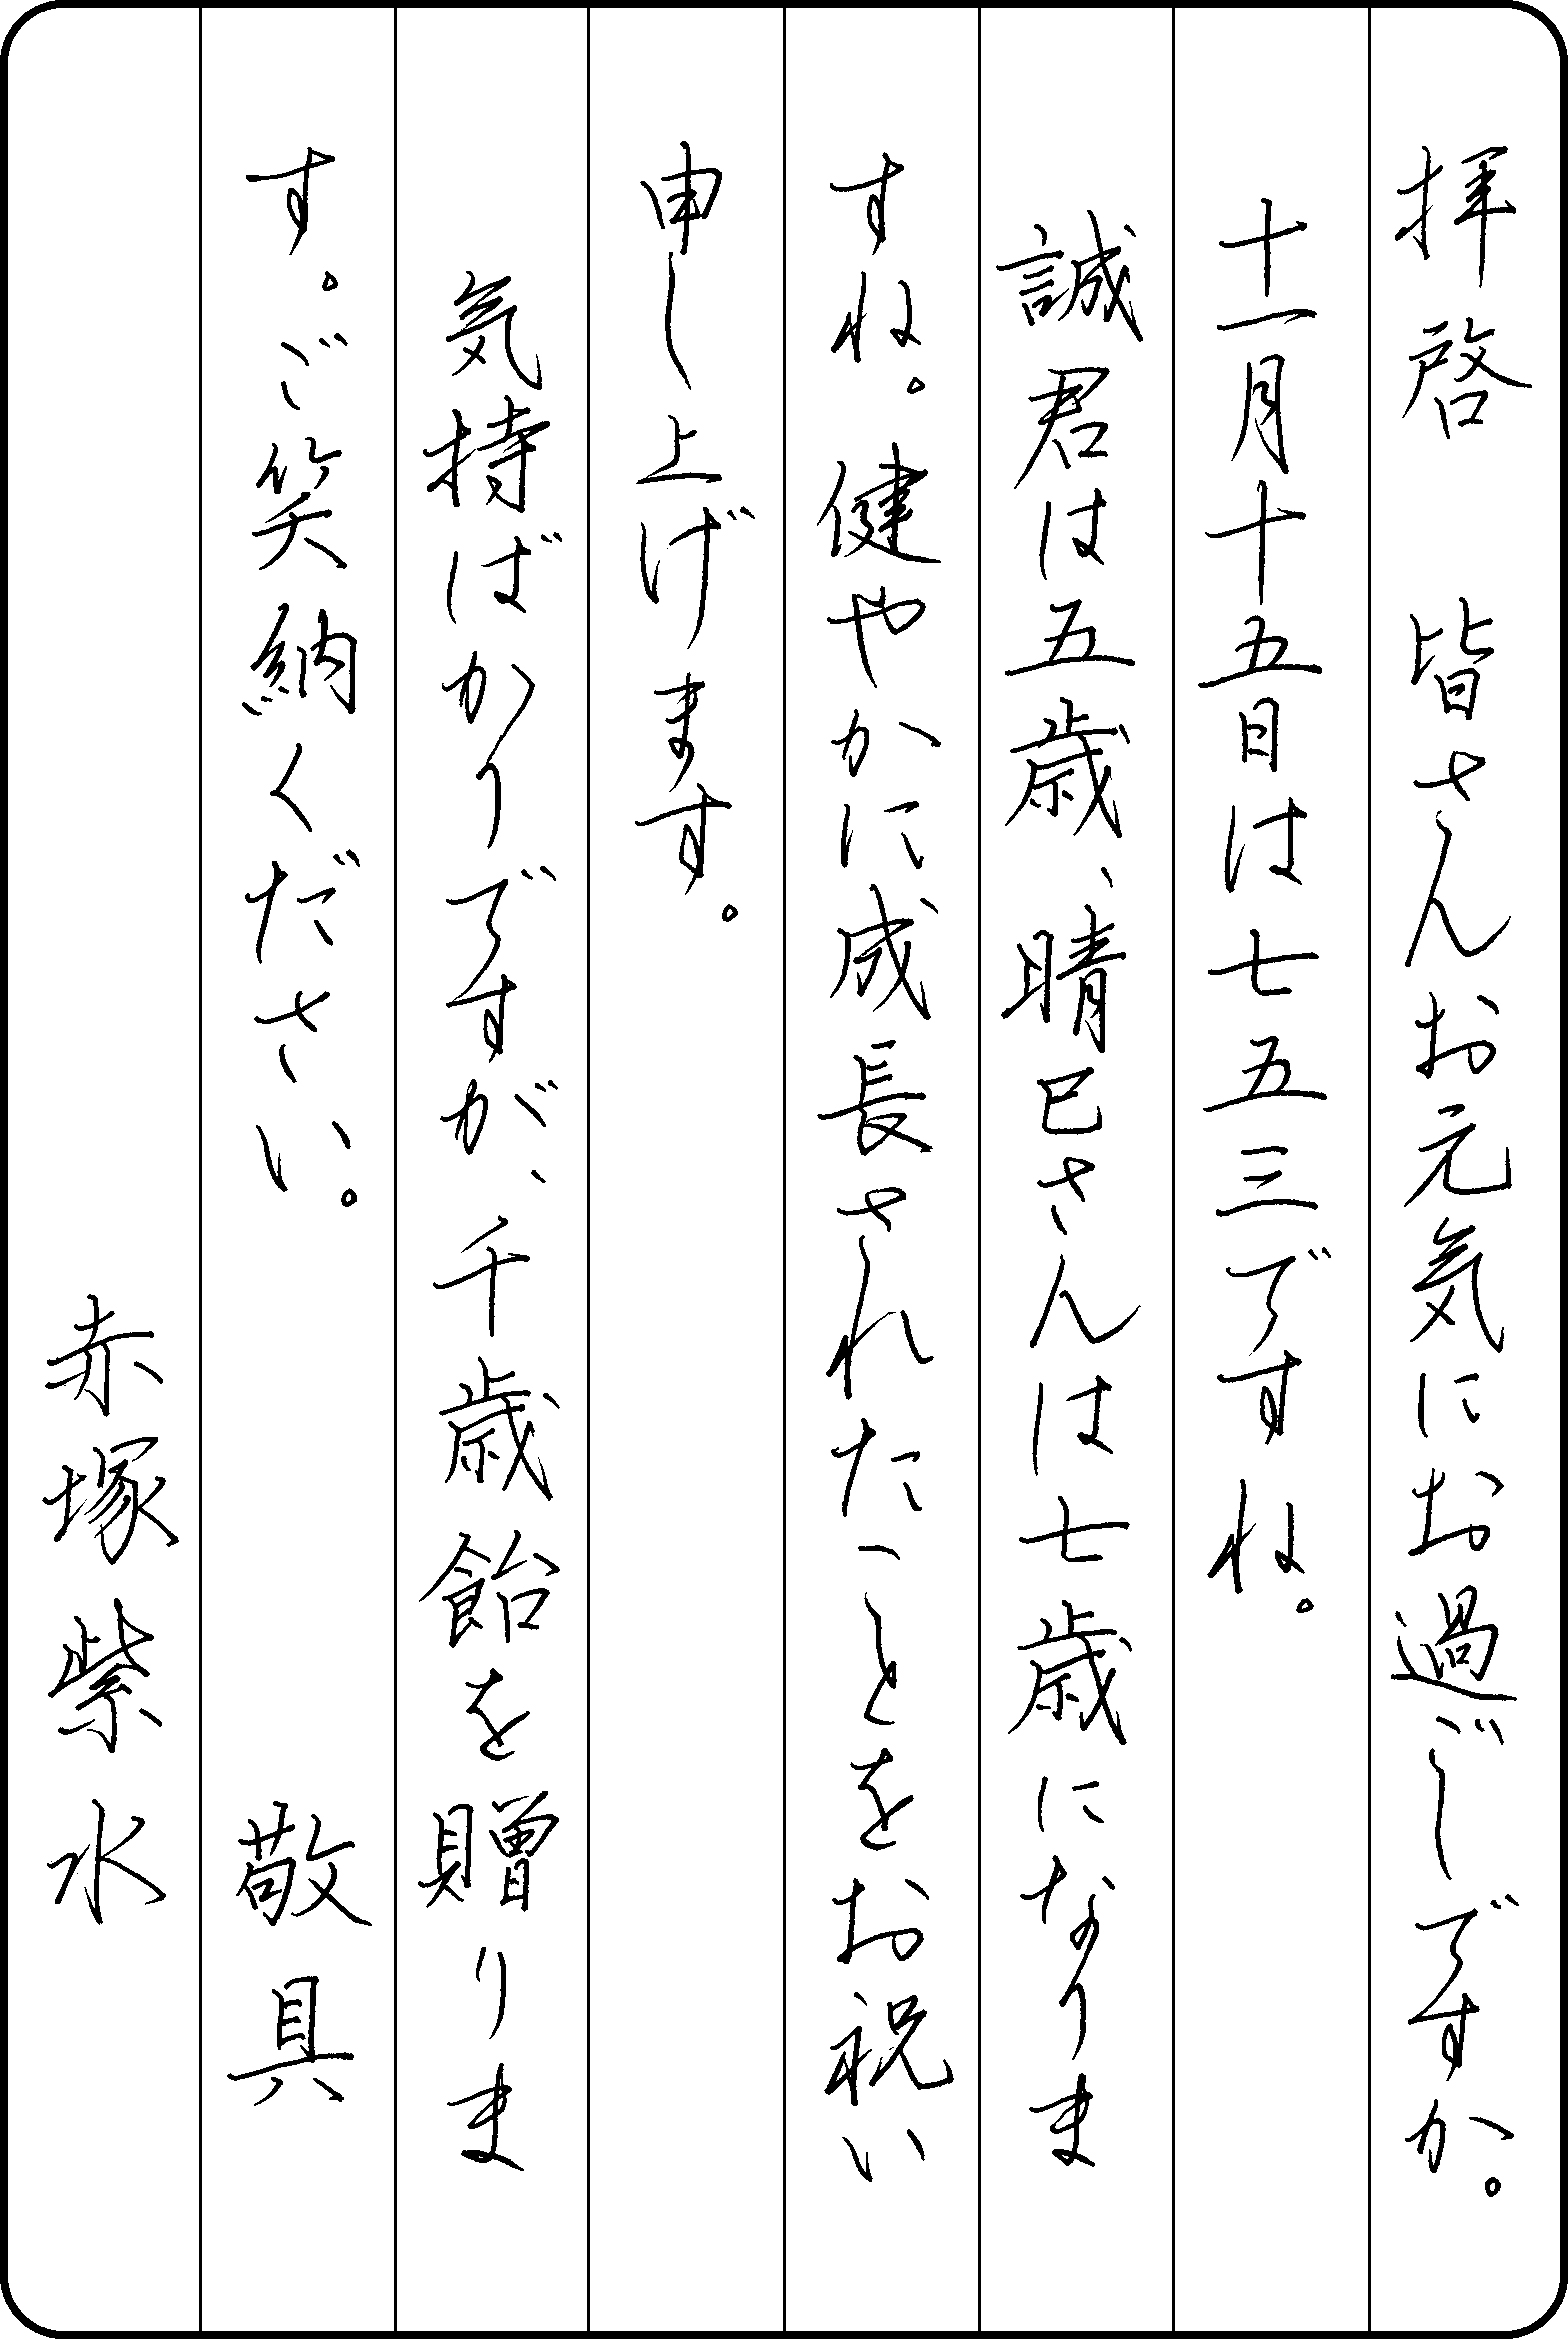 拝啓　皆さんお元気にお過ごしですか。
十一月十五日は七五三ですね。
誠君は五歳、晴巳さんは七歳になりま
すね。健やかに成長されたことをお祝い
申し上げます。
気持ばかりですが、千歳飴を贈りま
す。ご笑納ください。　敬具
赤塚紫水